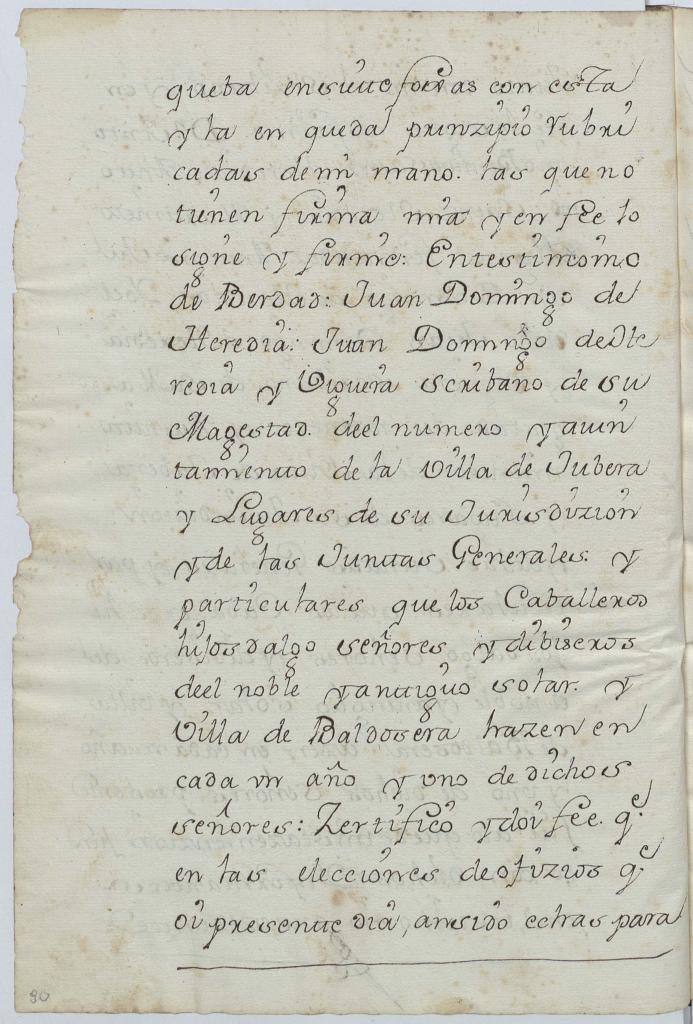 queba ensiette foxas con esta
y la en queda prinzipio rubri
cadas de mi mano. las que no
tienen firma mia y en fee lo
signe y firme: En testimonio
de Berdad: Juan Domingo de
Heredia: Juan Domingo de He
redia y Viguera scribano de su
Magestad. deel numero y aiun
tamientto de la Villa de Jubera
y Lugares de su Jurisdizion
y de las Junttas Generales. y
particulares que los Caballeros
hijosdalgo señores y dibiseros
deel noble y anttiguo solar. y
Villa de Baldosera hazen en
cada un año y uno de dichos
señores: Zertifico y doi fee. q.e
en las elecciones de ofizios q.e
oi presentte dia, an sido echas para
80